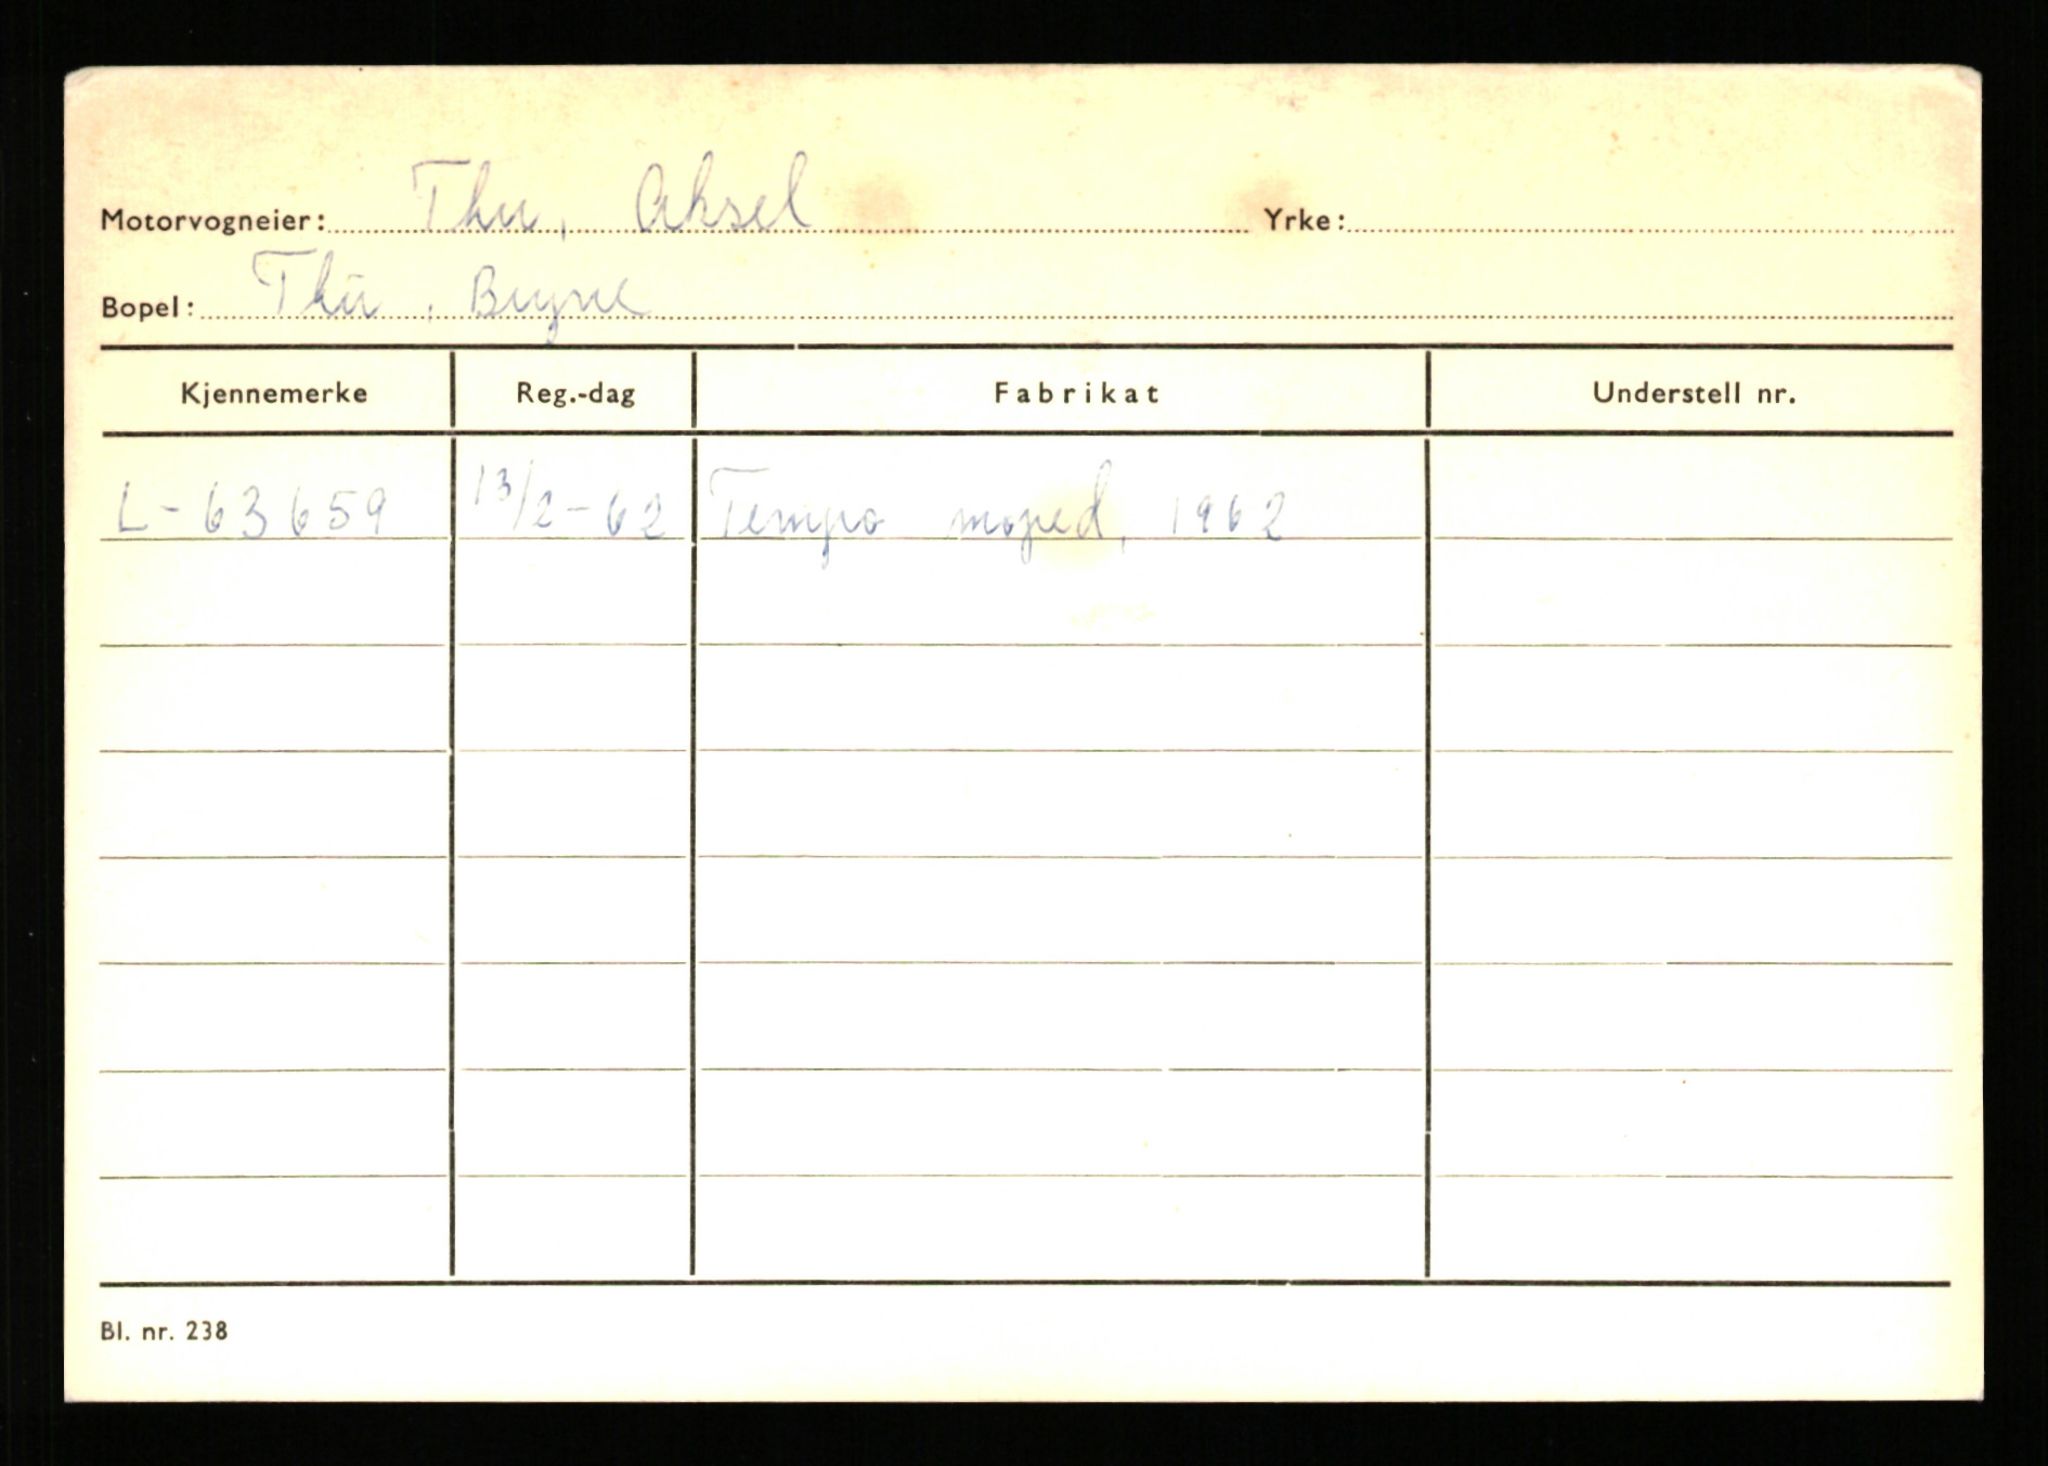 Motorvogneier: Thu, Aksel Yrke:
Bopel: Thu, Bryne
Kjennemerke Reg.-dag Fabrikat Understell nr.
L-63659 13/2-62 Tempo moped, 1962
Bl. nr. 238